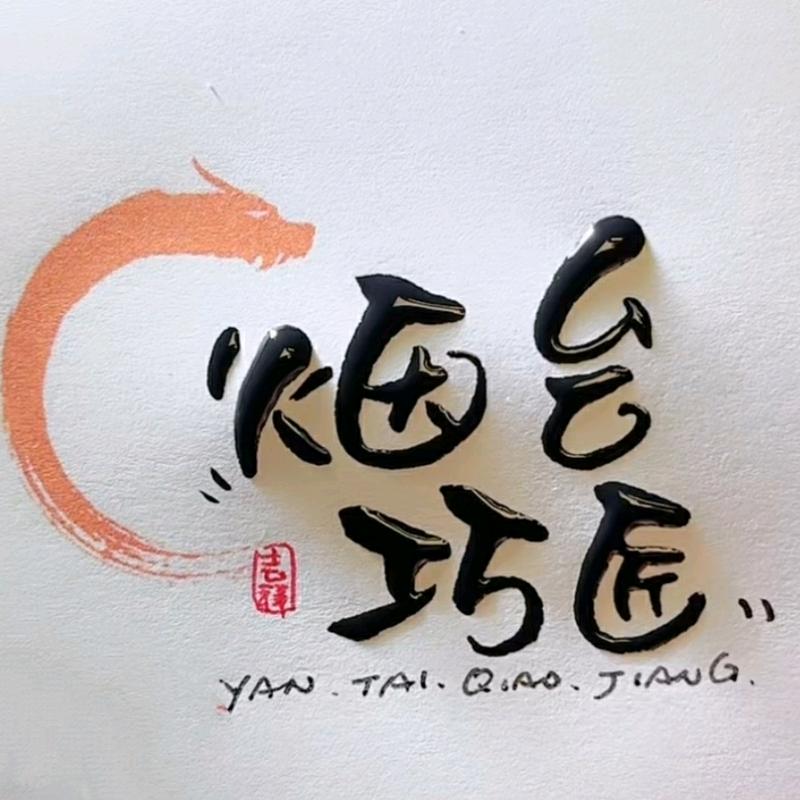 "烟台
巧匠"
吉祥
YAN.TAI.QIAO.JIANG.